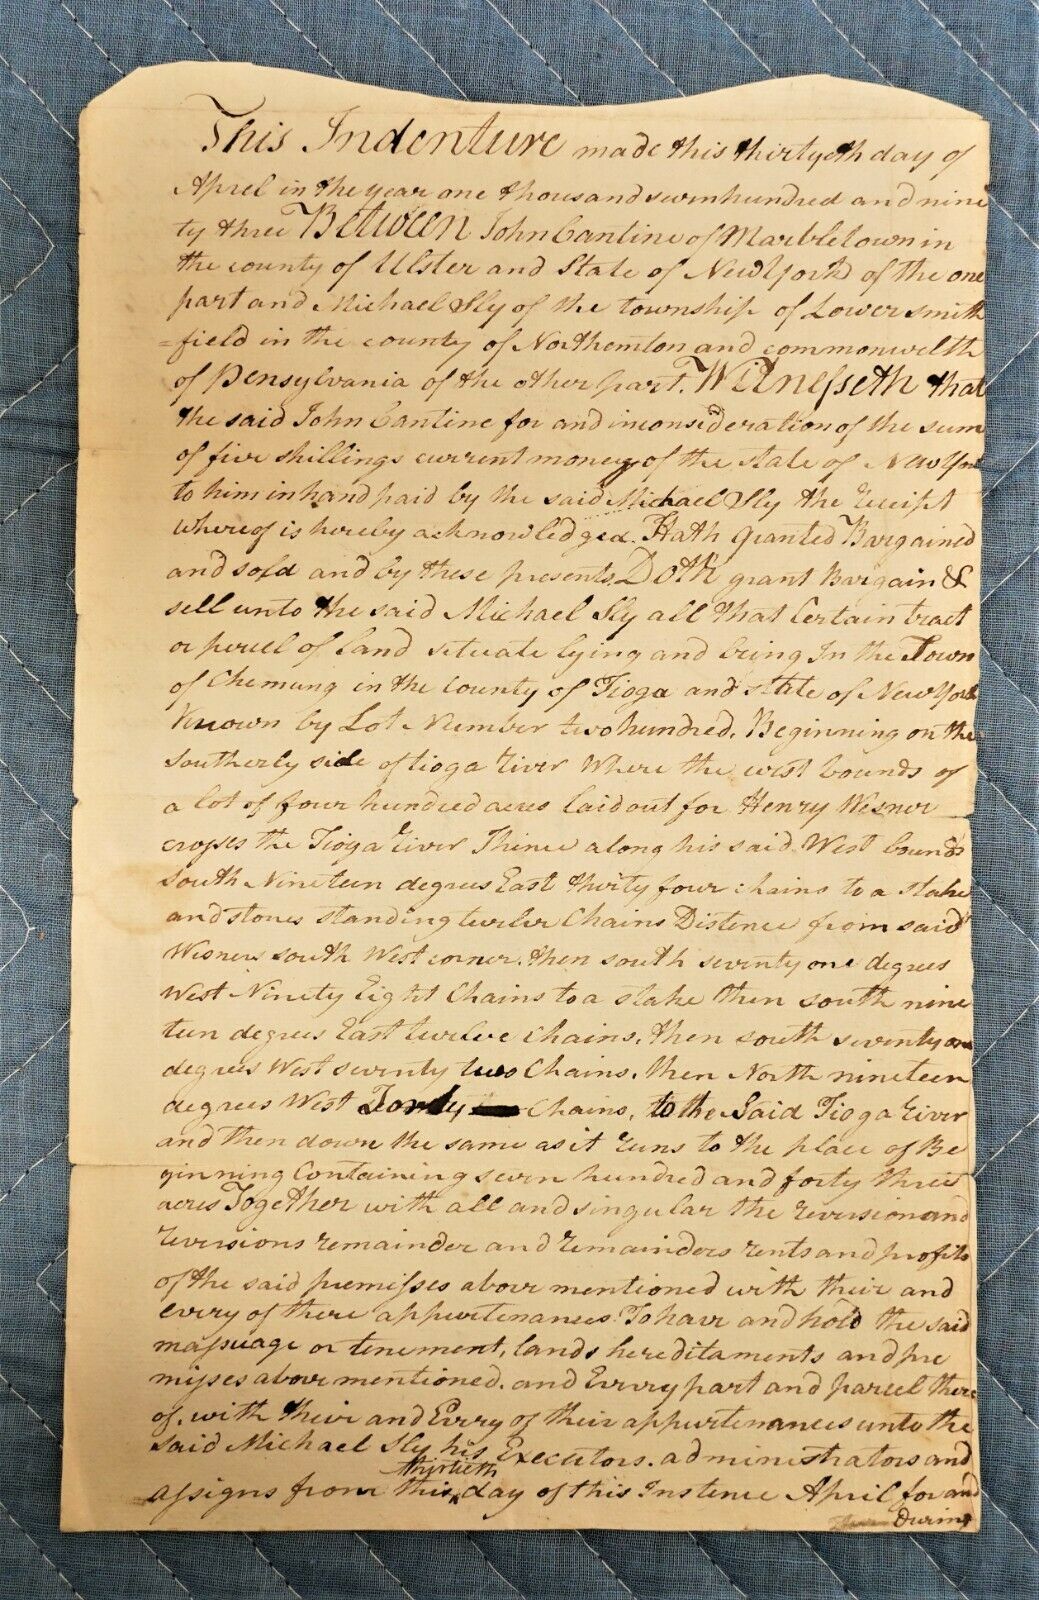 This Indenture made this thirtyeth day of
Aprel in the year one thousand sevinhundred and nine
ty three Between John Cantine of Marbletown in
the county of Ulster and State of New York of the one
part and Michael Sly of the township of Lower smith
=field in the county of Northemton and commonwelth
of Pensylvania of the other part. Witnesseth that
the said John Cantine for and inconsideration of the sum
of five shillings current money of the state of New York
to him in hand paid by the said Michael Sly the receipt
whereof is hereby acknowledged. Hath Granted Bargained
and sold and by these presents Doth grant Bargain &
sell unto the said Michael Sly all that Certain tract
or percel of Land situate lying and being In the Town
of Chemung in the county of Tioga and state of New York
Known by Lot Number two hundred. Beginning on the
Southerly side of tioga river Where the west bounds of
a lot of four hundred acres laid out for Henry Wesner
crosses the Tioga river Thince along his said West bounds
South Nineteen degrees East thirty four chains to a stake
and stones standing twelve Chains Distence from said
Wesners south West corner. then south seventy one degrees
West Ninety Eight Chains to a stake then south nine
teen degrees East twelve Chains. then south seventy one
degrees West seventy two Chains. then North nineteen
degrees West Fordy Chains, to the Said Tioga river
and then down the same as it runs to the place of Be
ginning Containing seven hundred and forty three
acres Together with all and singular the reversion and
reversions remainder and remainders rents and profits
of the said premisses above mentioned with their and
every of there appurtenances To have and hold the said
massuage or tenement, lands hereditaments and pre
misses above mentioned. and Every part and parcel there
of. with their and Every of their appurtenances unto the
said Michael Sly his Executors. administrators and
thirtieth
assigns from this day of this Instence April for and
During